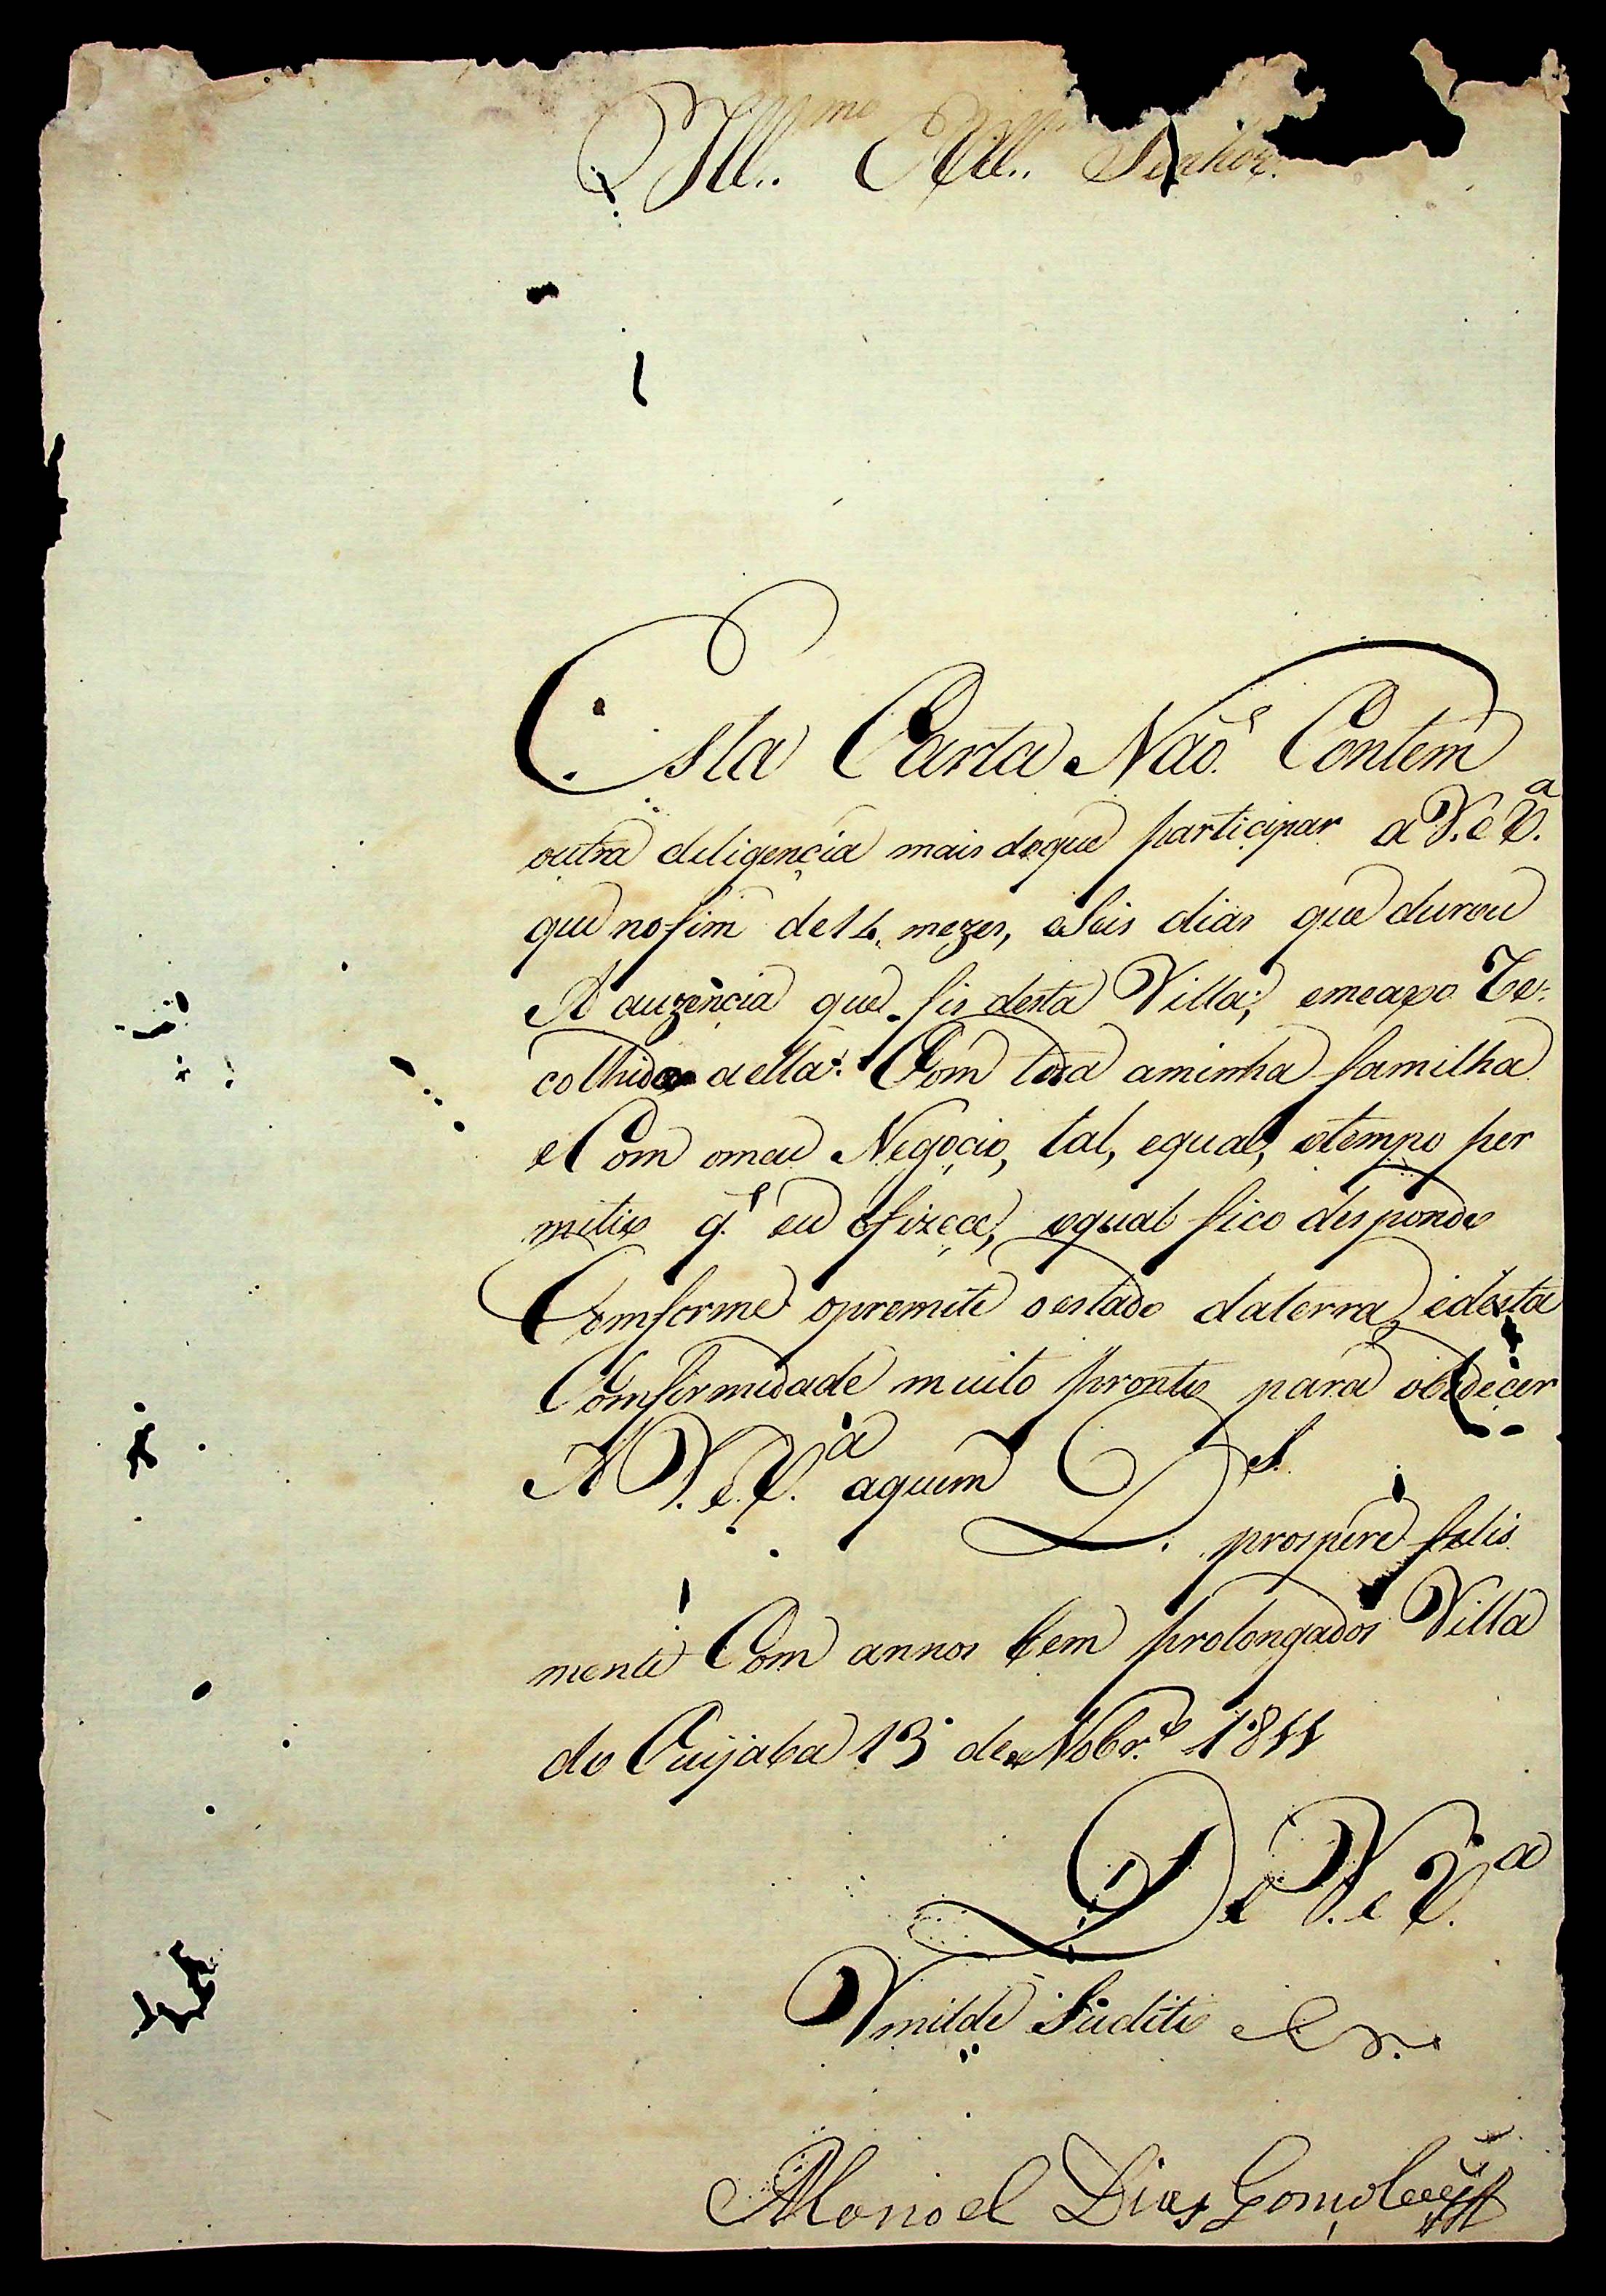 Ill.mo Senhor.
Esta Carta Não Contem
outra deligençia mais doque participar a V.e V.a
que nofim de14 mezes, eSeis dias que durou
A auzençia que fis desta Villa; emeaxo Re-
colhido aella: Com toda aminha familha
eCom omeu Negoçio, tal, equal, otempo per
mitio q.e eu ofizeçe, oqual fico despondo
Comforme opremite oestado daterra, edesta
Comformidade muito pronto para obedeçer
A V.e V.a aquem D.s
prospere felis
mente Com annos bem prolongados Villa
do Cuijaba 13 de Nobr.o 1811
De V.e V.a
Vmilde Sudito
Manoel Dias Gomçalves